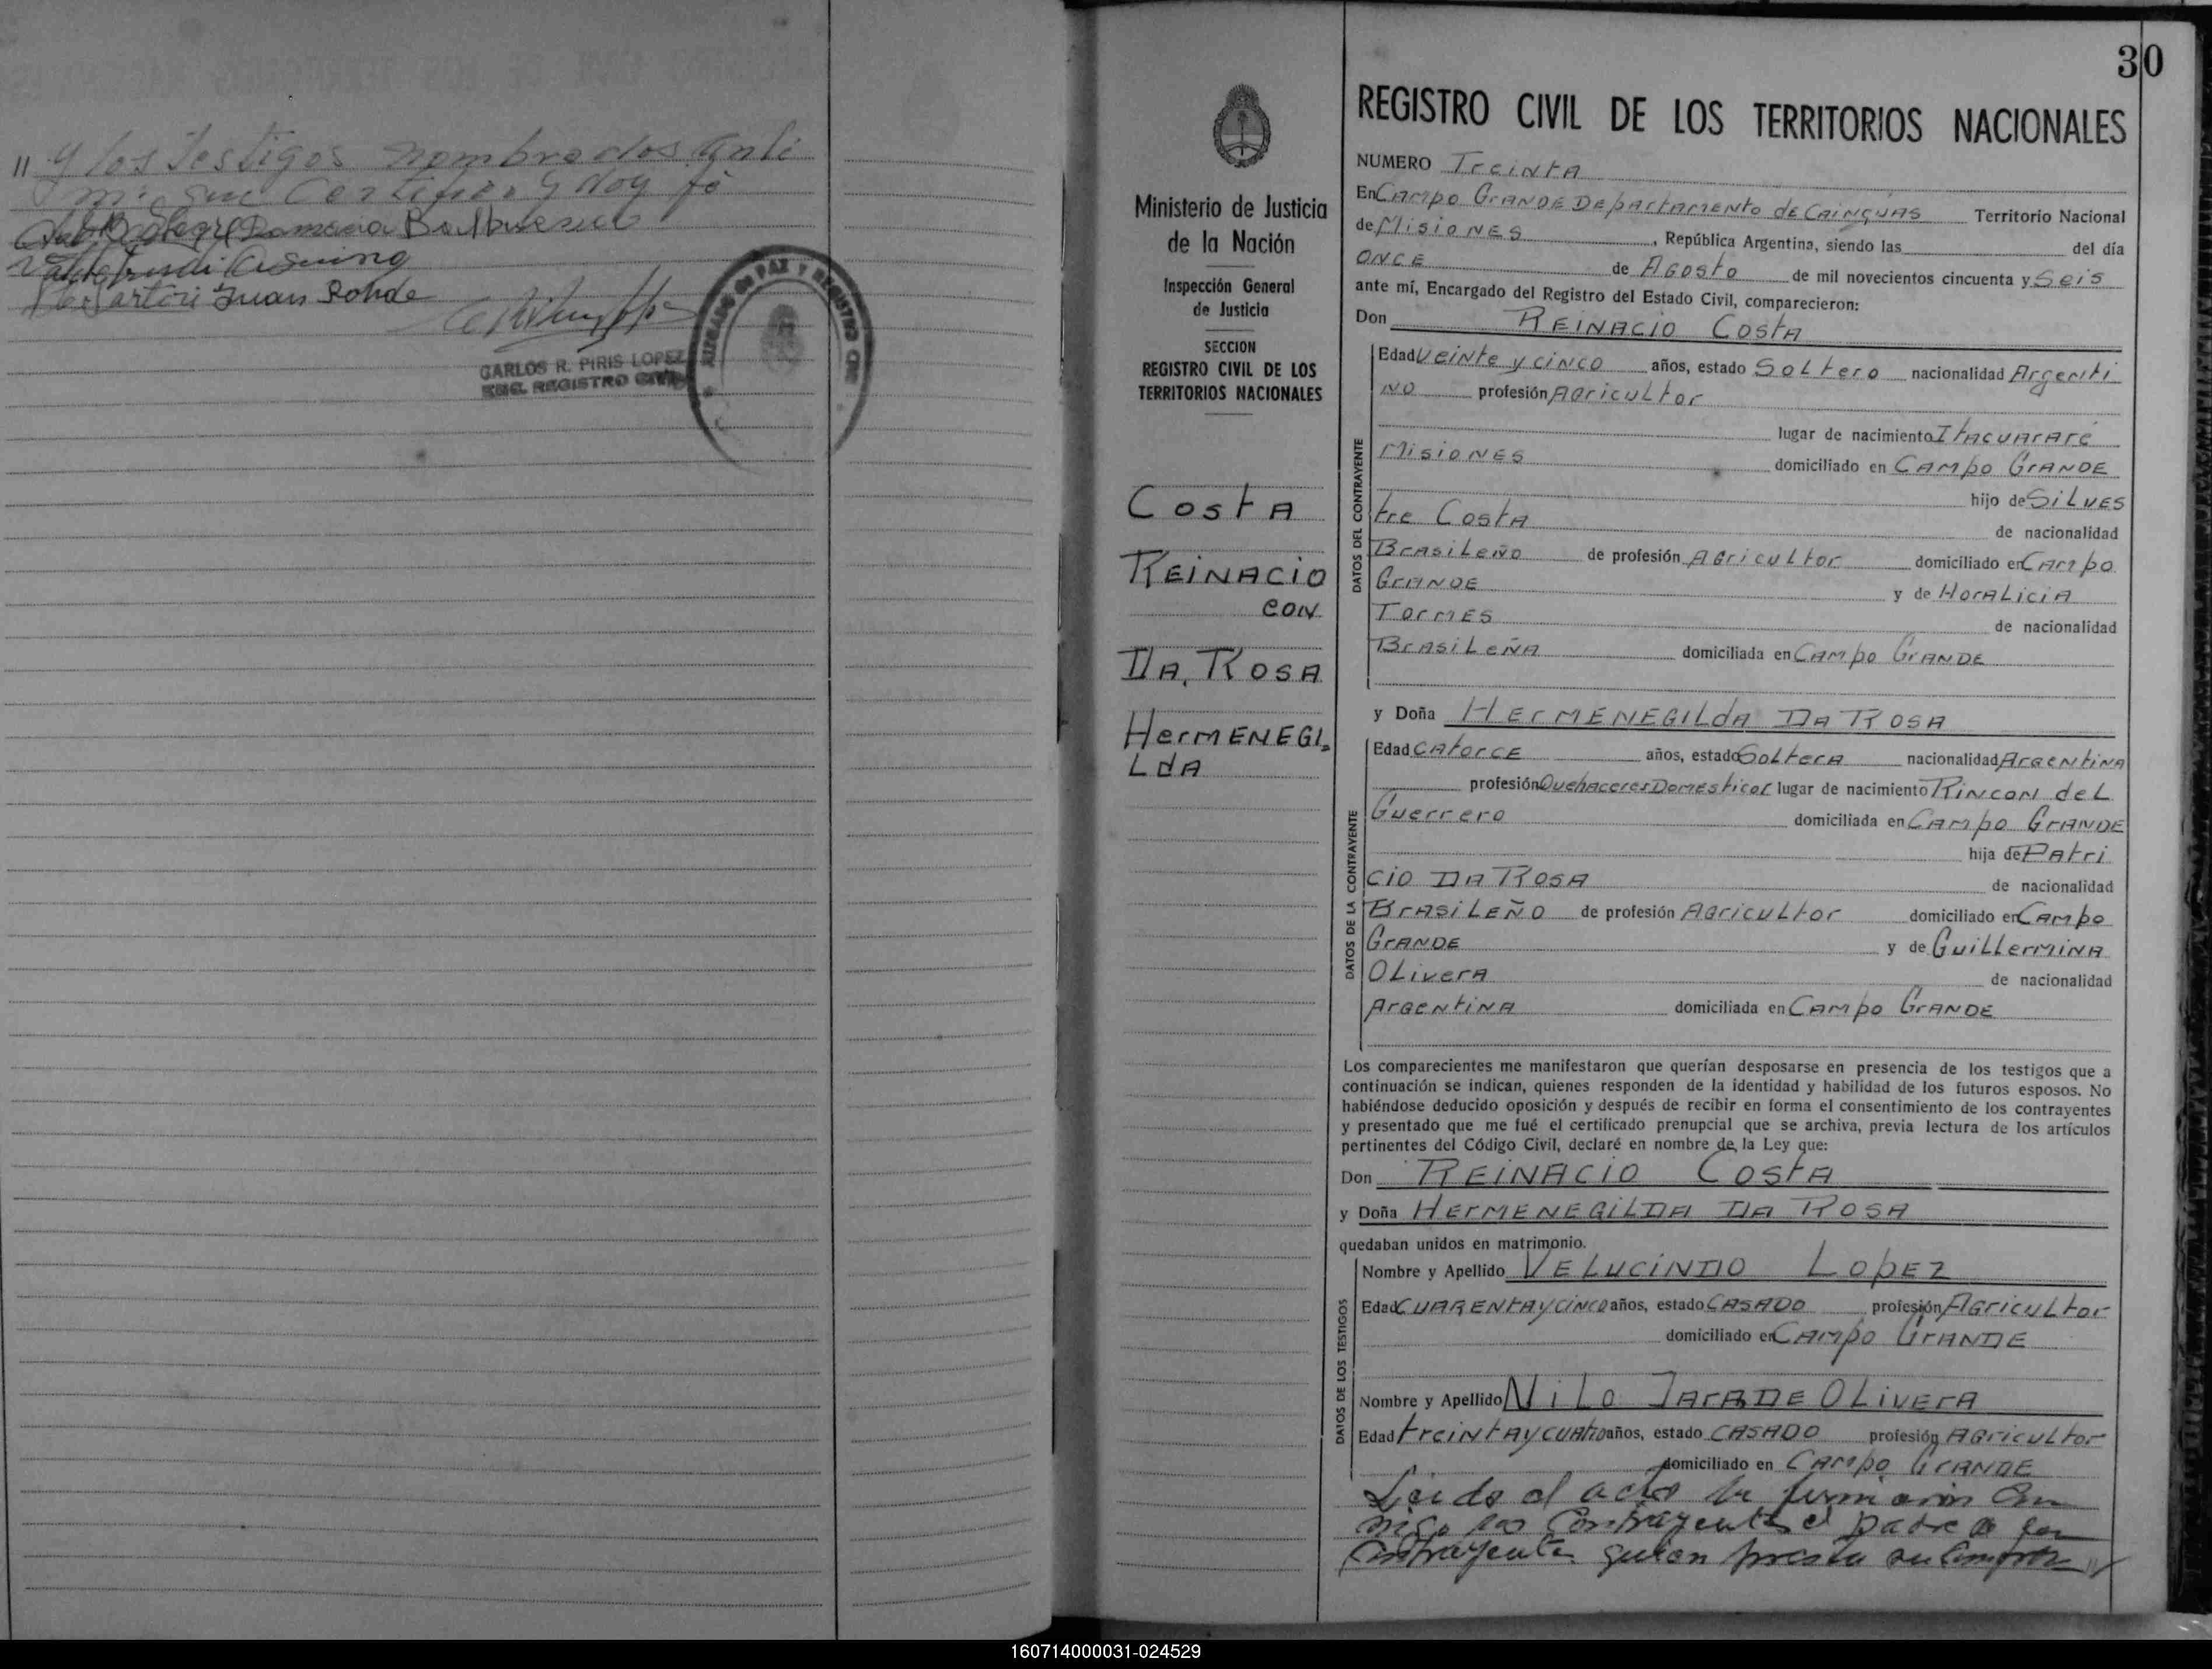 " y los testigos nombrados ante
mi, que certifico y doy fé
Ramona Balbuena
Sartori Juan Rohde
CARLOS R. PIRIS LOPEZ
ENC. REGISTRO CIVIL
JUZGADO DE PAZ Y REGISTRO CIVIL
30
Ministerio de Justicia
de la Nación
Inspección General
de Justicia
SECCION
REGISTRO CIVIL DE LOS
TERRITORIOS NACIONALES
Costa
Reinacio
con
Da, Rosa
Hermenegi=
Lda
REGISTRO CIVIL DE LOS TERRITORIOS NACIONALES
NUMERO Treinta
En Campo Grande Departamento de Cainguas Territorio Nacional
de Misiones, República Argentina, siendo las del día
once de Agosto de mil novecientos cincuenta y Seis
ante mí, Encargado del Registro del Estado Civil, comparecieron:
Don Reinacio Costa
DATOS DEL CONTRAYENTE
Edad Veinte y cinco años, estado Soltero nacionalidad Argenti
no profesión Agricultor
lugar de nacimiento Itacuararé
Misiones domiciliado en Campo Grande
hijo de Silves
tre Costa de nacionalidad
Brasileño de profesión Agricultor domiciliado en Campo
Grande y de Horalicia
Tormes de nacionalidad
Brasileña domiciliada en Campo Grande
y Doña Hermenegilda Da Rosa
DATOS DE LA CONTRAYENTE
Edad Catorce años, estado Soltera nacionalidad Argentina
profesión Quehaceres Domesticos lugar de nacimiento Rincon del
Guerrero domiciliada en Campo Grande
hija de Patri
cio Da Rosa de nacionalidad
Brasileño de profesión Agricultor domiciliado en Campo
Grande y de Guillermina
Olivera de nacionalidad
Argentina domiciliada en Campo Grande
Los comparecientes me manifestaron que querían desposarse en presencia de los testigos que a
continuación se indican, quienes responden de la identidad y habilidad de los futuros esposos. No
habiéndose deducido oposición y después de recibir en forma el consentimiento de los contrayentes
y presentado que me fué el certificado prenupcial que se archiva, previa lectura de los artículos
pertinentes del Código Civil, declaré en nombre de la Ley que:
Don Reinacio Costa
y Doña Hermenegilda Da Rosa
quedaban unidos en matrimonio.
DATOS DE LOS TESTIGOS
Nombre y Apellido Velucindo Lopez
Edad Cuarenta y cinco años, estado Casado profesión Agricultor
domiciliado en Campo Grande
Nombre y Apellido Nilo Jara de Olivera
Edad treinta y cuatro años, estado Casado profesión Agricultor
domiciliado en Campo Grande
Leida el acta la firmaron con
migo los Contrayentes el padre de la
Contrayente quien presta su
160714000031-024529